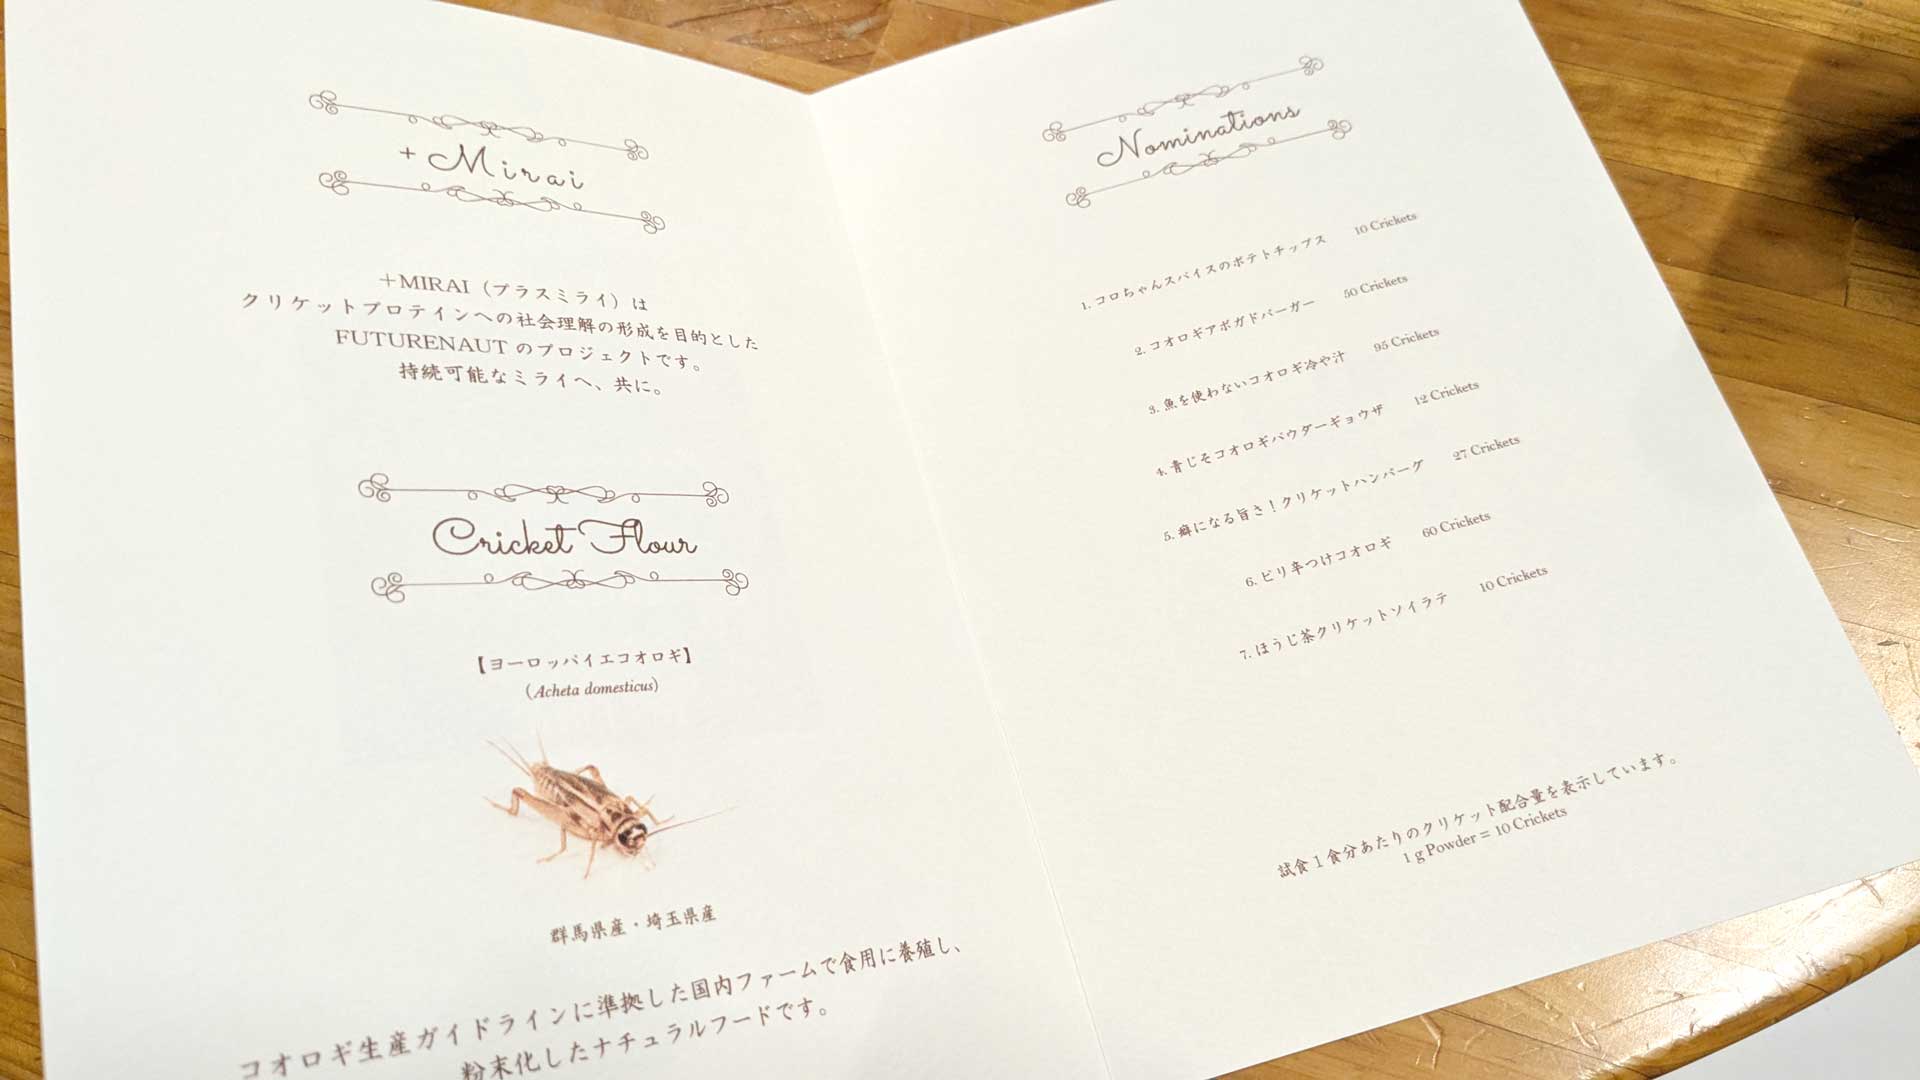 + Mirai
＋MIRAI（プラスミライ）は
クリケットプロテインへの社会理解の形成を目的とした
FUTURENAUT のプロジェクトです。
持続可能なミライへ、共に。
Cricket Flour
【ヨーロッパイエコオロギ】
（Acheta domesticus）
群馬県産・埼玉県産
コオロギ生産ガイドラインに準拠した国内ファームで食用に養殖し、
粉末化したナチュラルフードです。
Nominations
1. コロちゃんスパイスのポテトチップス 10 Crickets
2. コオロギアボガドバーガー 50 Crickets
3. 魚を使わないコオロギ冷や汁 95 Crickets
4. 青じそコオロギパウダーギョウザ 12 Crickets
5. 癖になる旨さ！クリケットハンバーグ 27 Crickets
6. ピリ辛つけコオロギ 60 Crickets
7. ほうじ茶クリケットソイラテ 10 Crickets
試食１食分あたりのクリケット配合量を表示しています。
1 g Powder = 10 Crickets